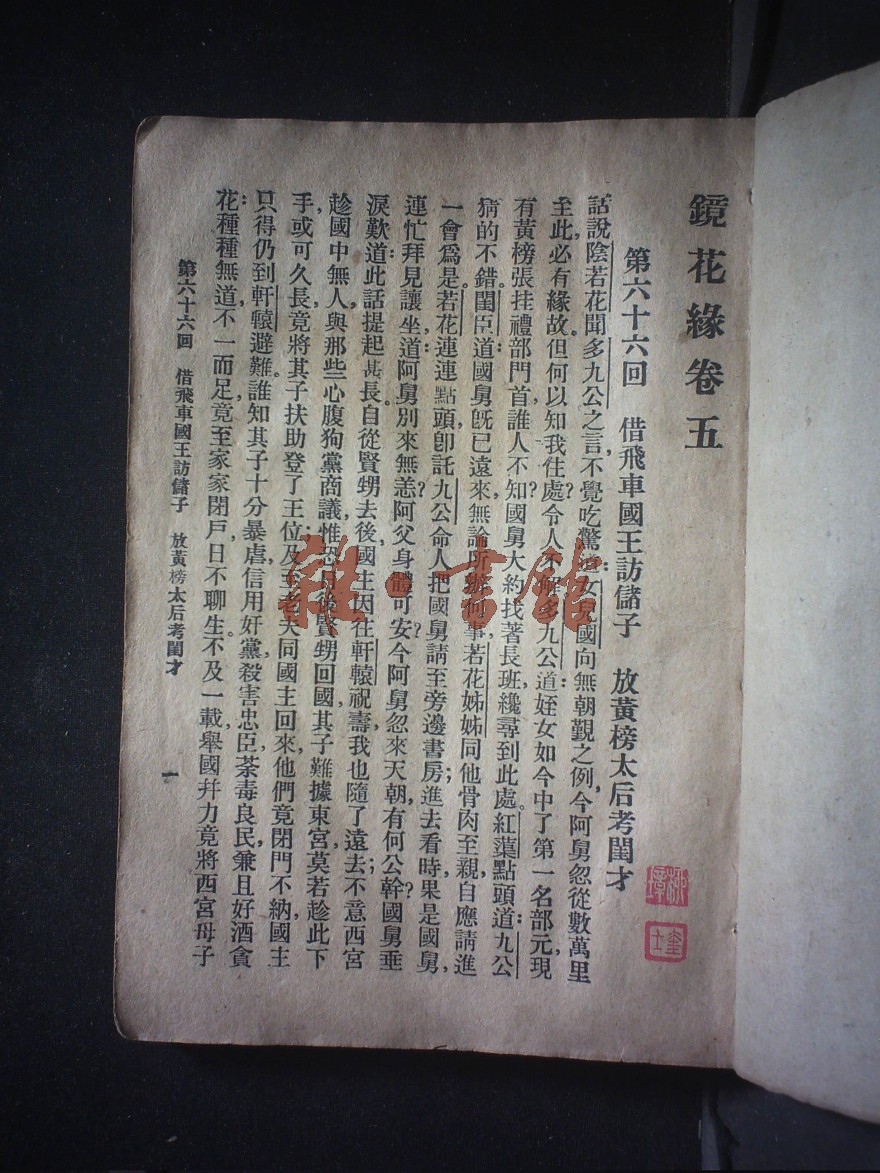 鏡花緣卷五
第六十六回　借飛車國王訪儲子　放黃榜太后考閨才
話說陰若花聞多九公之言，不覺吃驚道：女兒國向無朝覲之例，今阿舅忽從數萬里
至此，必有緣故。但何以知我住處？令人不解。多九公道：姪女如今中了第一名部元，現
有黃榜張挂禮部門首，誰人不知？國舅大約找著長班，纔尋到此處。紅蕖點頭道：九公
猜的不錯。閨臣道：國舅旣已遠來，無論所辦何事，若花姊姊同他骨肉至親，自應請進
一會爲是。若花連連點頭，卽託九公命人把國舅請至旁邊書房；進去看時，果是國舅，
連忙拜見讓坐，道：阿舅別來無恙？阿父身體可安？今阿舅忽來天朝，有何公幹？國舅垂
淚歎道：此話提起甚長。自從賢甥去後，國主因往軒轅祝壽，我也隨了遠去；不意西宮
趁國中無人，與那些心腹狗黨商議，惟恐日後賢甥回國，其子難據東宮，莫若趁此下
手，或可久長，竟將其子扶助登了王位。及至老夫同國主回來，他們竟閉門不納，國主
只得仍到軒轅避難。誰知其子十分暴虐，信用奸黨，殺害忠臣，荼毒良民，兼且好酒貪
花，種種無道，不一而足，竟至家家閉戶，日不聊生。不及一載，舉國幷力，竟將西宮母子
第六十六回　借飛車國王訪儲子　放黃榜太后考閨才　一
雜·書館